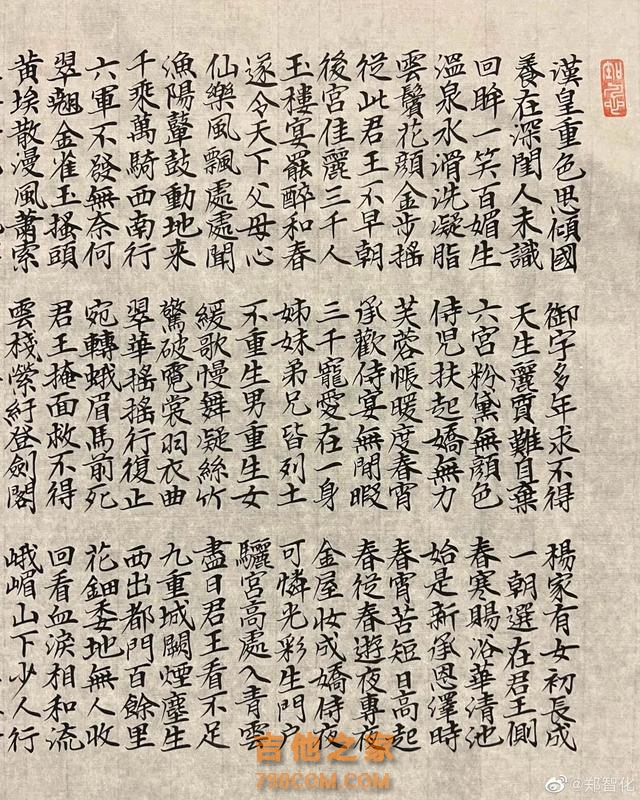 漢皇重色思傾國 御宇多年求不得 楊家有女初長成
養在深閨人未識 天生麗質難自棄 一朝選在君王側
回眸一笑百媚生 六宮粉黛無顏色 春寒賜浴華清池
溫泉水滑洗凝脂 侍児扶起嬌無力 始是新承恩澤時
雲鬢花顏金步搖 芙蓉帳暖度春宵 春宵苦短日高起
從此君王不早朝 承歡侍宴無閒暇 春從春遊夜專夜
後宮佳麗三千人 三千寵愛在一身 金屋妝成嬌侍夜
玉樓宴罷醉和春 姊妹弟兄皆列土 可憐光彩生門戶
遂令天下父母心 不重生男重生女 驪宮高處入青雲
仙樂風飄處處聞 緩歌慢舞凝絲竹 盡日君王看不足
漁陽鼙鼓動地来 驚破霓裳羽衣曲 九重城闕煙塵生
千乘萬騎西南行 翠華搖搖行復止 西出都門百餘里
六軍不發無奈何 宛轉蛾眉馬前死 花鈿委地無人收
翠翹金雀玉搔頭 君王掩面救不得 回看血淚相和流
黃埃散漫風蕭索 雲棧縈紆登劍閣 峨嵋山下少人行
吉他之家
798COM.COM
@郑智化